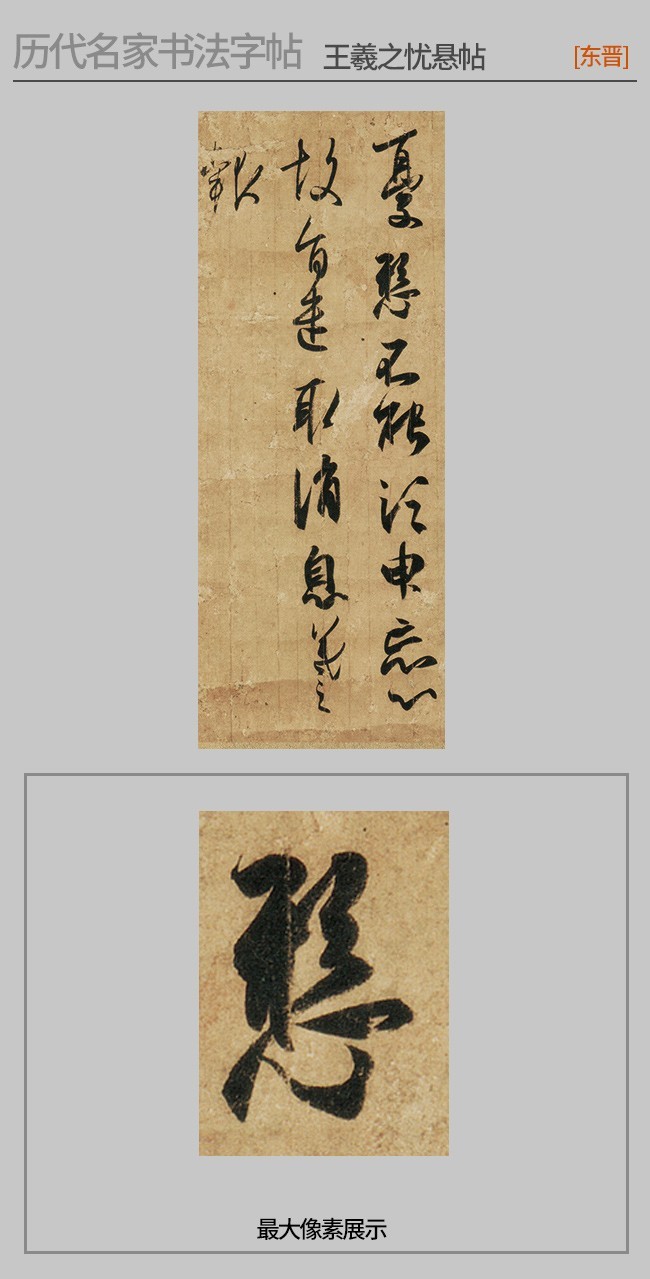 历代名家书法字帖 王羲之忧悬帖 [东晋]
憂懸不能須申忘心
故旨遣取消息羲之
報
懸
最大像素展示